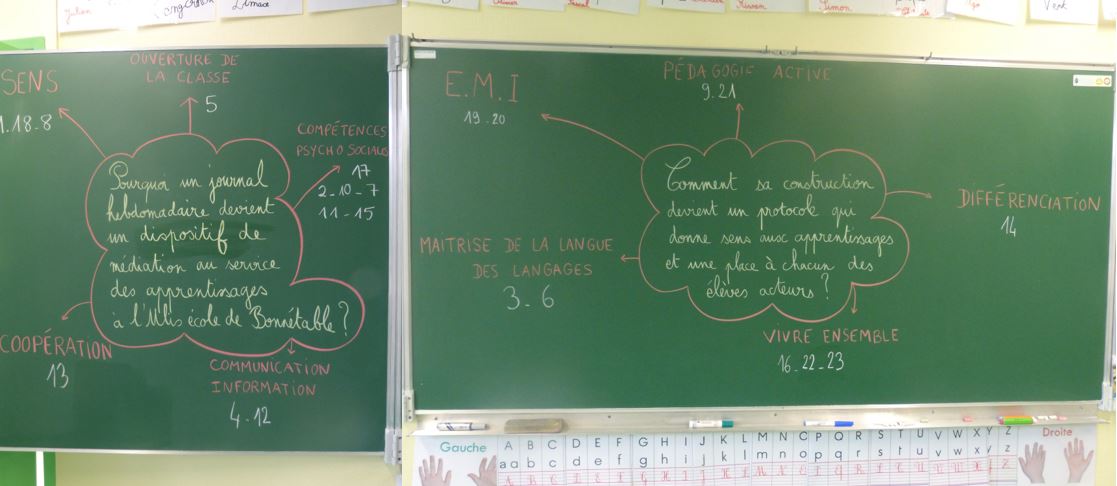 Julien
Limace
Simon
SENS
1.18-8
OUVERTURE DE
LA CLASSE
5
COMPÉTENCES
PSYCHO SOCIALES
17
2-10-7
11-15
Pourquoi un journal
hebdomadaire devient
un dispositif de
médiation au service
des apprentissages
à l'Ulis école de Bonnétable ?
COOPÉRATION
13
COMMUNICATION
INFORMATION
4-12
E.M.I
19-20
PÉDAGOGIE ACTIVE
9.21
Comment sa construction
devient un protocole qui
donne sens aux apprentissages
et une place à chacun des
élèves acteurs ?
DIFFÉRENCIATION
14
MAITRISE DE LA LANGUE
DES LANGAGES
3-6
VIVRE ENSEMBLE
16-22-23
Gauche
A B C D E F G H I J K L M N O P Q R S T U V W X Y Z
a b c d e f g h i j k l m n o p q r s t u v w x y z
Droite